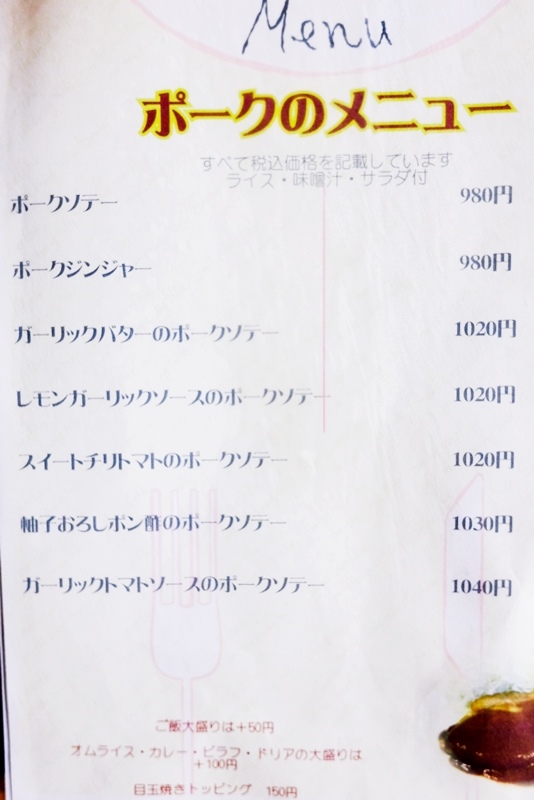 Menu
ポークのメニュー
すべて税込価格を記載しています
ライス・味噌汁・サラダ付
ポークソテー 980円
ポークジンジャー 980円
ガーリックバターのポークソテー 1020円
レモンガーリックソースのポークソテー 1020円
スイートチリトマトのポークソテー 1020円
柚子おろしポン酢のポークソテー 1030円
ガーリックトマトソースのポークソテー 1040円
ご飯大盛りは+50円
オムライス・カレー・ピラフ・ドリアの大盛りは
+100円
目玉焼きトッピング 150円